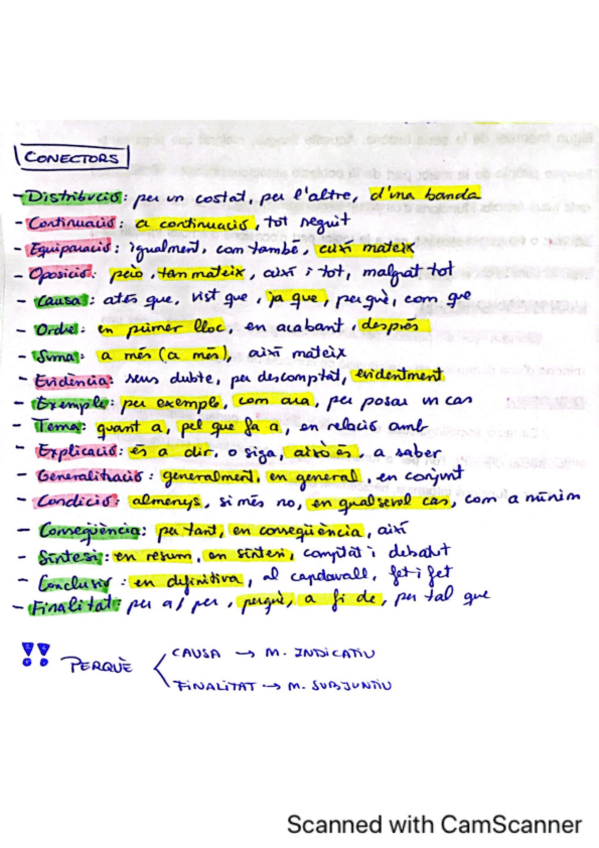 CONECTORS
- Distribució: per un costat, per l'altre, d'una banda
- Continuació: a continuació, tot seguit
- Equiparació: igualment, com també, així mateix
- Oposició: però, tanmateix, així i tot, malgrat tot
- Causa: atés que, vist que, ja que, perquè, com que
- Ordre: en primer lloc, en acabant, després
- Suma: a més (a més), així mateix
- Evidència: sens dubte, per descomptat, evidentment
- Exemple: per exemple, com ara, per posar un cas
- Tema: quant a, pel que fa a, en relació amb
- Explicació: és a dir, o siga, això és, a saber
- Generalització: generalment, en general, en conjunt
- Condició: almenys, si més no, en qualsevol cas, com a mínim
- Conseqüència: per tant, en conseqüència, així
- Síntesi: en resum, en síntesi, comptat i debatut
- Conclusió: en definitiva, al capdavall, fet i fet
- Finalitat: per a / per, perquè, a fi de, per tal que
!! PERQUÈ
CAUSA → M. INDICATIU
FINALITAT → M. SUBJUNTIU
Scanned with CamScanner